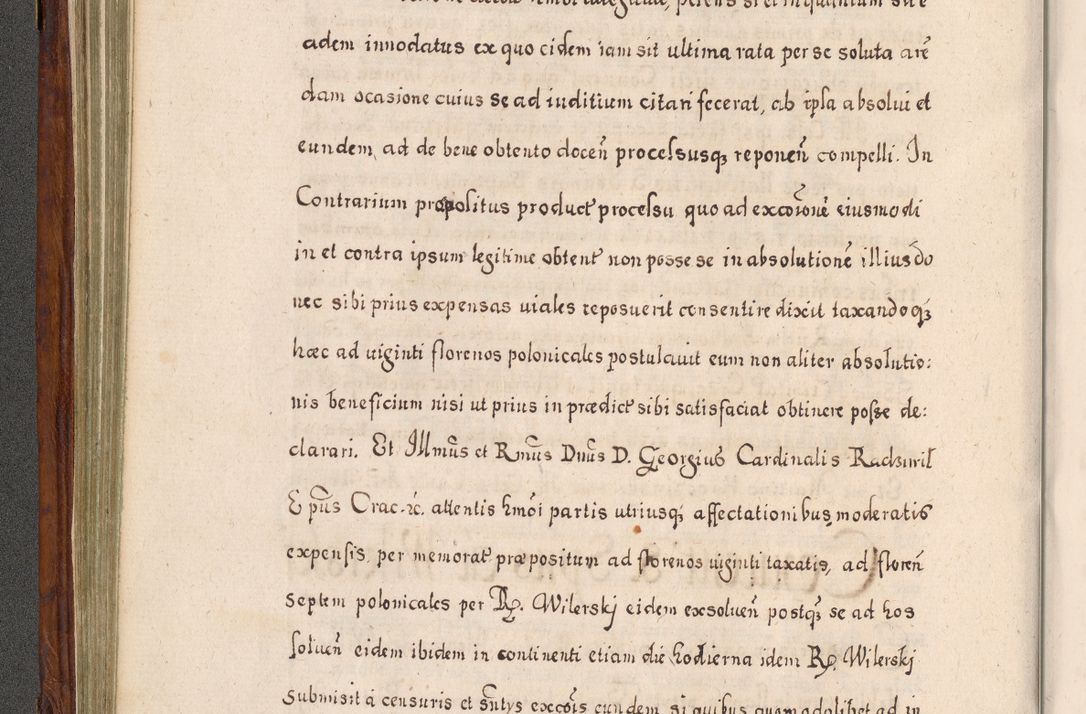 adem innodatus ex quo eidem iam sit ultima rata per se soluta arẽ
dam ocasione cuius se ad iuditium citari fecerat, ab ipsa absolui et
eundem, ad de bene obtento docen̄ processusqꝫ reponen̄ compelli. In
Contrarium præpositus product̃ processu quo ad exc̃oĩone eiusmodi
in et contra ipsum legitime obtent̃ non posse se in absolutionẽ illius do
nec sibi prius expensas uiales reposuerit consentire dixit taxandoqꝫ
hæc ad uiginti florenos polonicales postulauit eum non aliter absolutio:
nis beneficium nisi ut prius in prædict̃ sibi satisfaciat obtinere posse de:
clarari. Et Illmũs et Rmũs Dnũs D. Georgius Cardinalis Radziwil
Epũs Crac. ꝛc. attentis hm̃oi partis utriusqꝫ affectationibus moderatis
expensis, per memorat̃ præpositum ad florenos uiginti taxatis, ad floren̄
septem polonicales per Rꝓ. Wilerskj eidem exsoluen̄ postqꝫ se ad hos
soluen̄ eidem ibidem in continenti etiam die hodierna idem Rꝓ. Wilerskj
submisit á censuris et sñtys exccõis eundem si quibus quomodolibet ad in